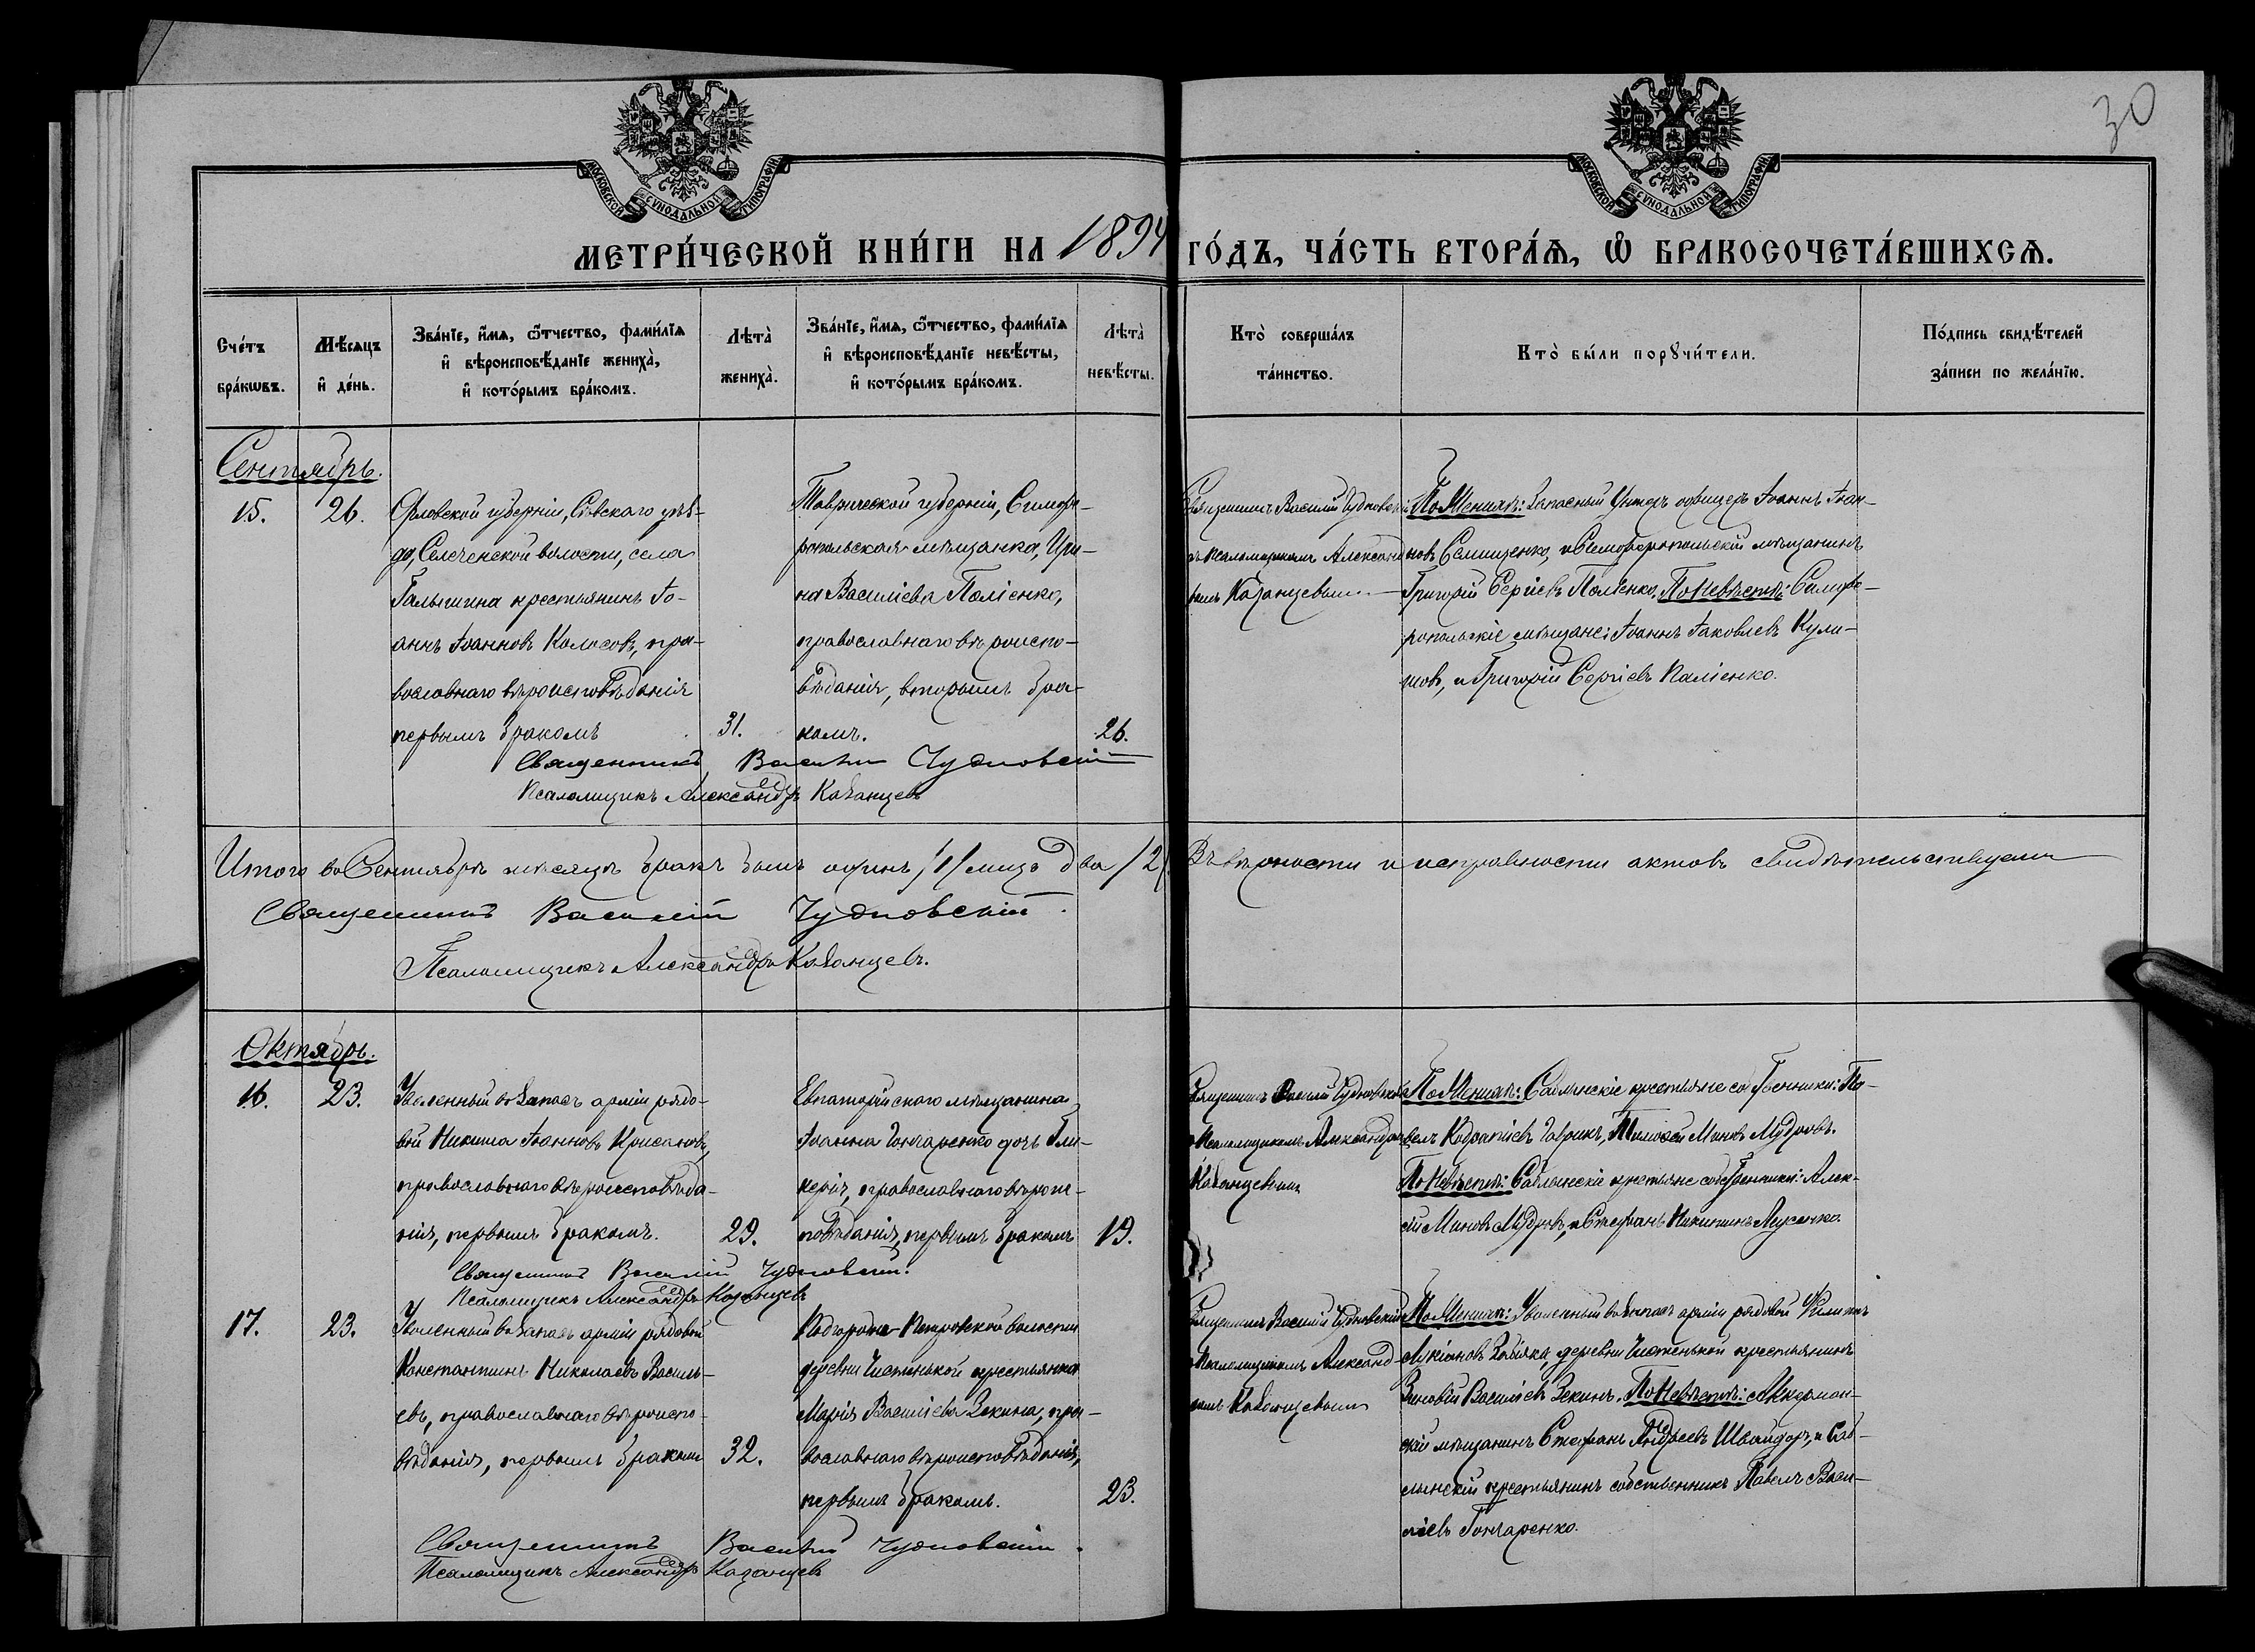 30
МОСКОВСКОЙ СѴНОДАЛЬНОЙ ТИПОГРАФІИ
МОСКОВСКОЙ СѴНОДАЛЬНОЙ ТИПОГРАФІИ
МЕТРИ́ЧЕСКОЙ КНИ́ГИ НА 1894 ГО́ДЪ, ЧА́СТЬ ВТОРА́Ѧ, Ѽ БРАКОСОЧЕТА́ВШИХСѦ.
Сче́тъ
бра́кѡвъ.
Мѣ́сяцъ
и҆ де́нь.
Зва́нїе, и҆́мѧ, ѻ҆́тчество, фами́лїѧ
и҆ вѣроисповѣ́данїе жениха̀,
и҆ кото́рымъ бра́комъ.
Лѣта̀
жениха̀.
Зва́нїе, и҆́мѧ, ѻ҆́тчество, фами́лїѧ
и҆ вѣроисповѣ́данїе невѣ́сты,
и҆ кото́рымъ бра́комъ.
Лѣта̀
невѣ́сты.
Кто̀ соверша́лъ
та́инство.
Кто̀ бы́ли порꙋчи́тели.
По́дпись свидѣ́телей
за́писи по жела́нїю.
Сентябрь.
15.
26.
Орловской губерніи, Сѣвскаго уѣз-
да, Селеченской волости, села
крестьянинъ Іо-
аннъ Іоанновъ Колосовъ, пра-
вославнаго вѣроисповѣданія
первымъ бракомъ
31.
Таврической губерніи, Симфе-
ропольская мѣщанка, Ири-
на Василіева Паліенко,
православнаго вѣроиспо-
вѣданія, вторымъ бра-
комъ.
26.
Священникъ Василій Чудновскій
съ псаломщикомъ Александ-
ромъ Казанцевымъ
По Женихѣ: Запасный Унтеръ офицеръ Іоаннъ Іоан-
новъ Семищенко, и Симферопольскій мѣщанинъ
Григорій Сергіевъ Паліенко. По Невѣстѣ: Симфе-
ропольскіе мѣщане: Іоаннъ Іаковлевъ
и Григорій Сергіевъ Паліенко.
Священникъ Василій Чудновскій
Псаломщикъ Александръ Казанцевъ
Итого въ Сентябрѣ мѣсяцѣ бракъ былъ одинъ /1/ лицъ два /2/. Въ вѣрности и исправности актовъ свидѣтельствуемъ
Священникъ Василій Чудновскій.
Псаломщикъ Александръ Казанцевъ.
Октябрь.
16.
23.
Уволенный въ запасъ арміи рядо-
вой Никита Іоанновъ
православнаго вѣроисповѣда-
нія, первымъ бракомъ.
29.
Евпаторійскаго мѣщанина
Іоанна Гончаренко дочь Гли-
керія, православнаго вѣроис-
повѣданія, первымъ бракомъ
19.
Священникъ Василій Чудновскій
съ псаломщикомъ Александромъ
Казанцевымъ
По Женихѣ: Саблынскіе крестьяне собственники: Па-
велъ Кодратіевъ Тимофей Миновъ Мудровъ.
По Невѣстѣ: Саблынскіе крестьяне собственники: Алек-
сѣй Миновъ Мудровъ, и Стефанъ Никитинъ
Священникъ Василій Чудновскій.
Псаломщикъ Александръ Казанцевъ
17.
23.
Уволенный въ запасъ арміи рядовой
Константинъ Николаевъ Василь-
евъ, православнаго вѣроиспо-
вѣданія, первымъ бракомъ
32.
Подгородне-Петровской волости
деревни Чистенькой крестьянка
Марія Василіева Зекина, пра-
вославнаго вѣроисповѣданія,
первымъ бракомъ.
23.
Священникъ Василій Чудновскій
съ псаломщикомъ Александ-
ромъ Казанцевымъ
По Женихѣ: Уволенный въ запасъ арміи рядовой Филиппъ
Лукіановъ деревни Чистенькой крестьянинъ
Зиновій Василіевъ Зекинъ. По Невѣстѣ: Аккерман-
скій мѣщанинъ Стефанъ Андреевъ Швайдоръ, и Саб-
лынскій крестьянинъ собственникъ Павелъ Васи-
ліевъ Гончаренко.
Священникъ Василій Чудновскій.
Псаломщикъ Александръ Казанцевъ